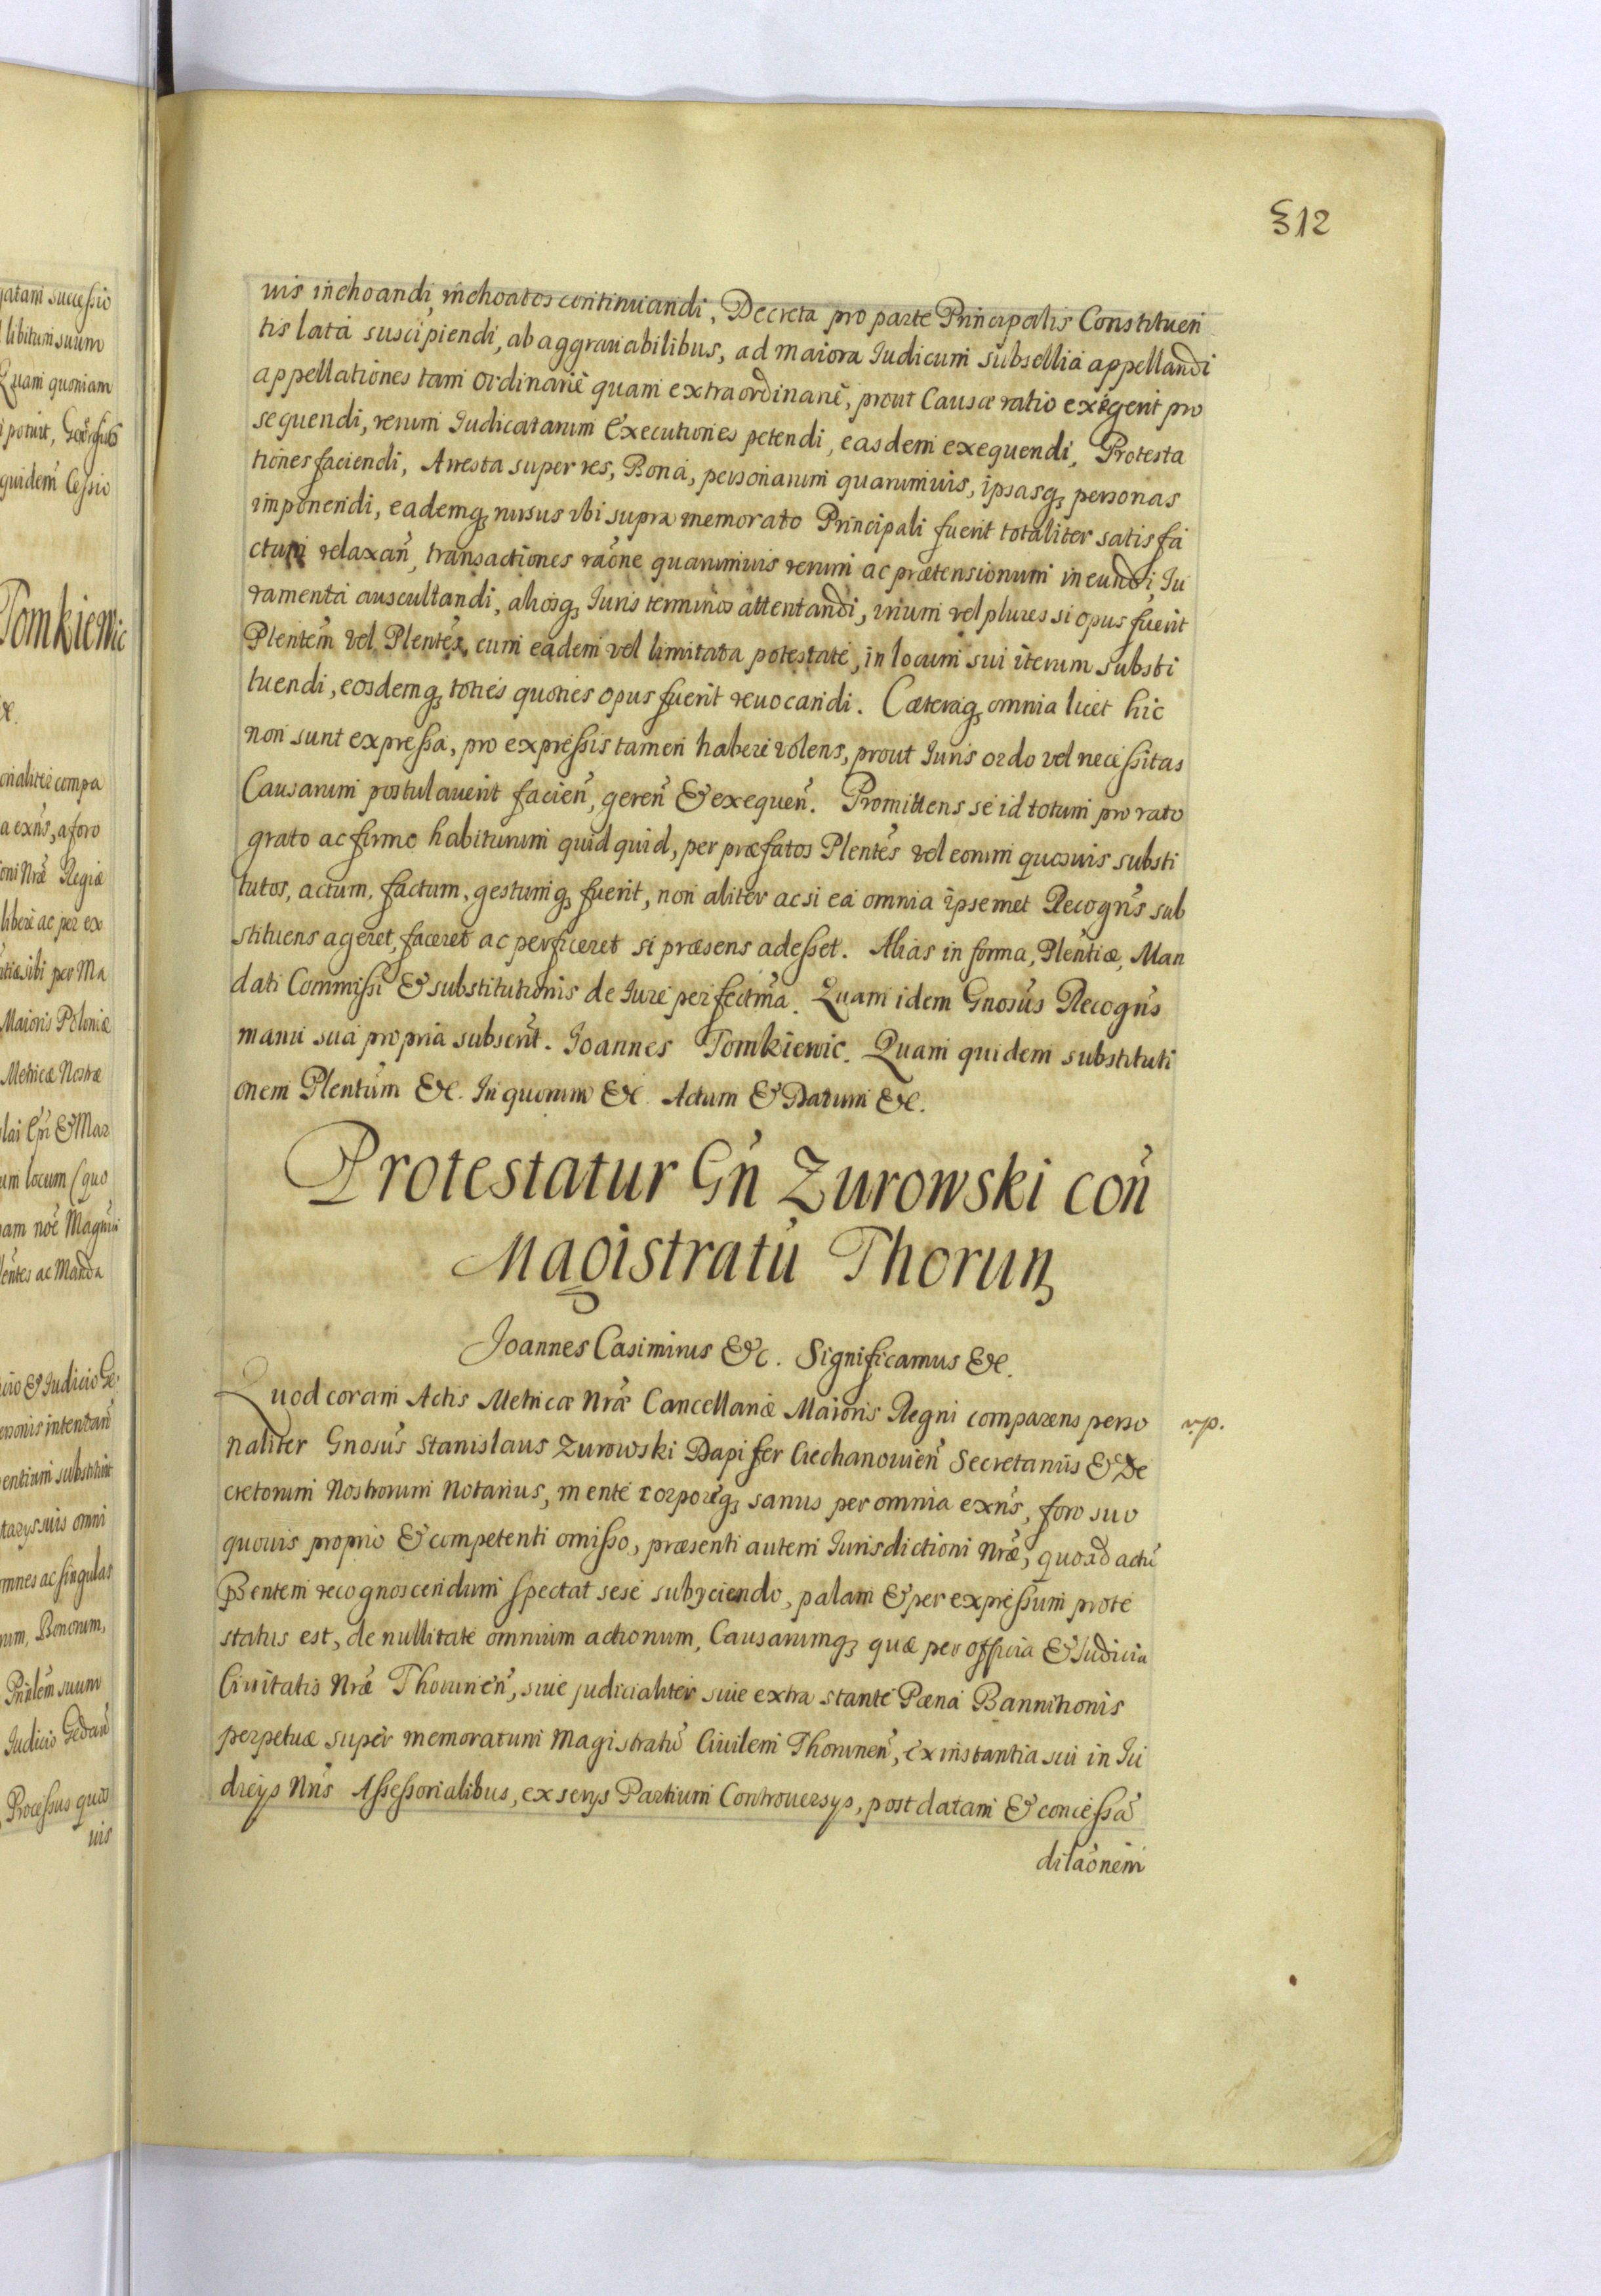 312
uis inchoandi, inchoatos continuandi, Decreta pro parte Principalis Constituen
tis lata suscipiendi, ab aggrauabilibus, ad maiora Iudicum subsellia appellandi
appellationes tam ordinarie quam extraordinarie, prout Causæ ratio exegerit pro
sequendi, rerum Iudicatarum Executiones petendi, easdem exequendi, Protesta
tiones faciendi, Arresta super res, Bona, personarum quarumuis, ipsasq, personas
imponendi, eademq, rursus vbi supra memorato Principali fuerit totaliter satisfa
ctum relaxan̄, transactiones raōne quarumuis rerum ac prætensionum ineundi, Iu
ramenta auscultandi, aliosq, Iuris terminos attentandi, vnum vel plures si opus fuerit
Plentem̄ vel Plentes̄, cum eadem vel limitata potestate, in locum sui iterum substi
tuendi, eosdemq, toties quoties opus fuerit reuocandi. Cæteraq, omnia licet hic
non sunt expressa, pro expressis tamen haberi volens, prout Iuris ordo vel necessitas
Causarum postulauerit facien̄, geren̄ & exequen̄. Promittens se id totum pro rato
grato ac firmo habiturum quidquid, per præfatos Plentes̄ vel eorum quosuis substi
tutos, actum, factum, gestumq, fuerit, non aliter acsi ea omnia ipsemet Recogn̄s sub
stituens ageret, faceret ac perficeret si præsens adesset. Alias in forma, Plentiæ, Man
dati Commissi & substitutionis de Iure perfectma. Quam idem Gnosus̄ Recogn̄s
manu sua propria subscrit̄. Ioannes Tomkiewic. Quam quidem substituti
onem Plentūm &c. In quorum &c. Actum & Datum &c.
Protestatur Gn̄ Zurowski con̄
Magistratū Thorun
Ioannes Casimirus &c. Significamus &c.
Quod coram Actis Metricæ Nræ Cancellariæ Maioris Regni comparens perso
naliter Gnosus̄ Stanislaus Zurowski Dapifer Ciechanouien̄ Secretarius & De
cretorum Nostrorum Notarius, mente corporeq, sanus per omnia exn̄s, foro suo
quouis proprio & competenti omisso, præsenti autem Iurisdictioni Nræ, quoad actū
Psentem recognoscendum spectat sese subyciendo, palam & per expressum prote
status est, de nullitate omnium actionum, Causarumq, quæ per officia & Iudicia
Ciuitatis Nræ Thorunen̄, siue judicialiter siue extra stante Pæna Bannitionis
perpetuæ super memoratum Magistratū Ciuilem Thorunen̄, ex instantia sui in Iu
dicijs Nrīs Assessorialibus, ex serys Partium Controuersys, post datam & concessā
dilaōnem